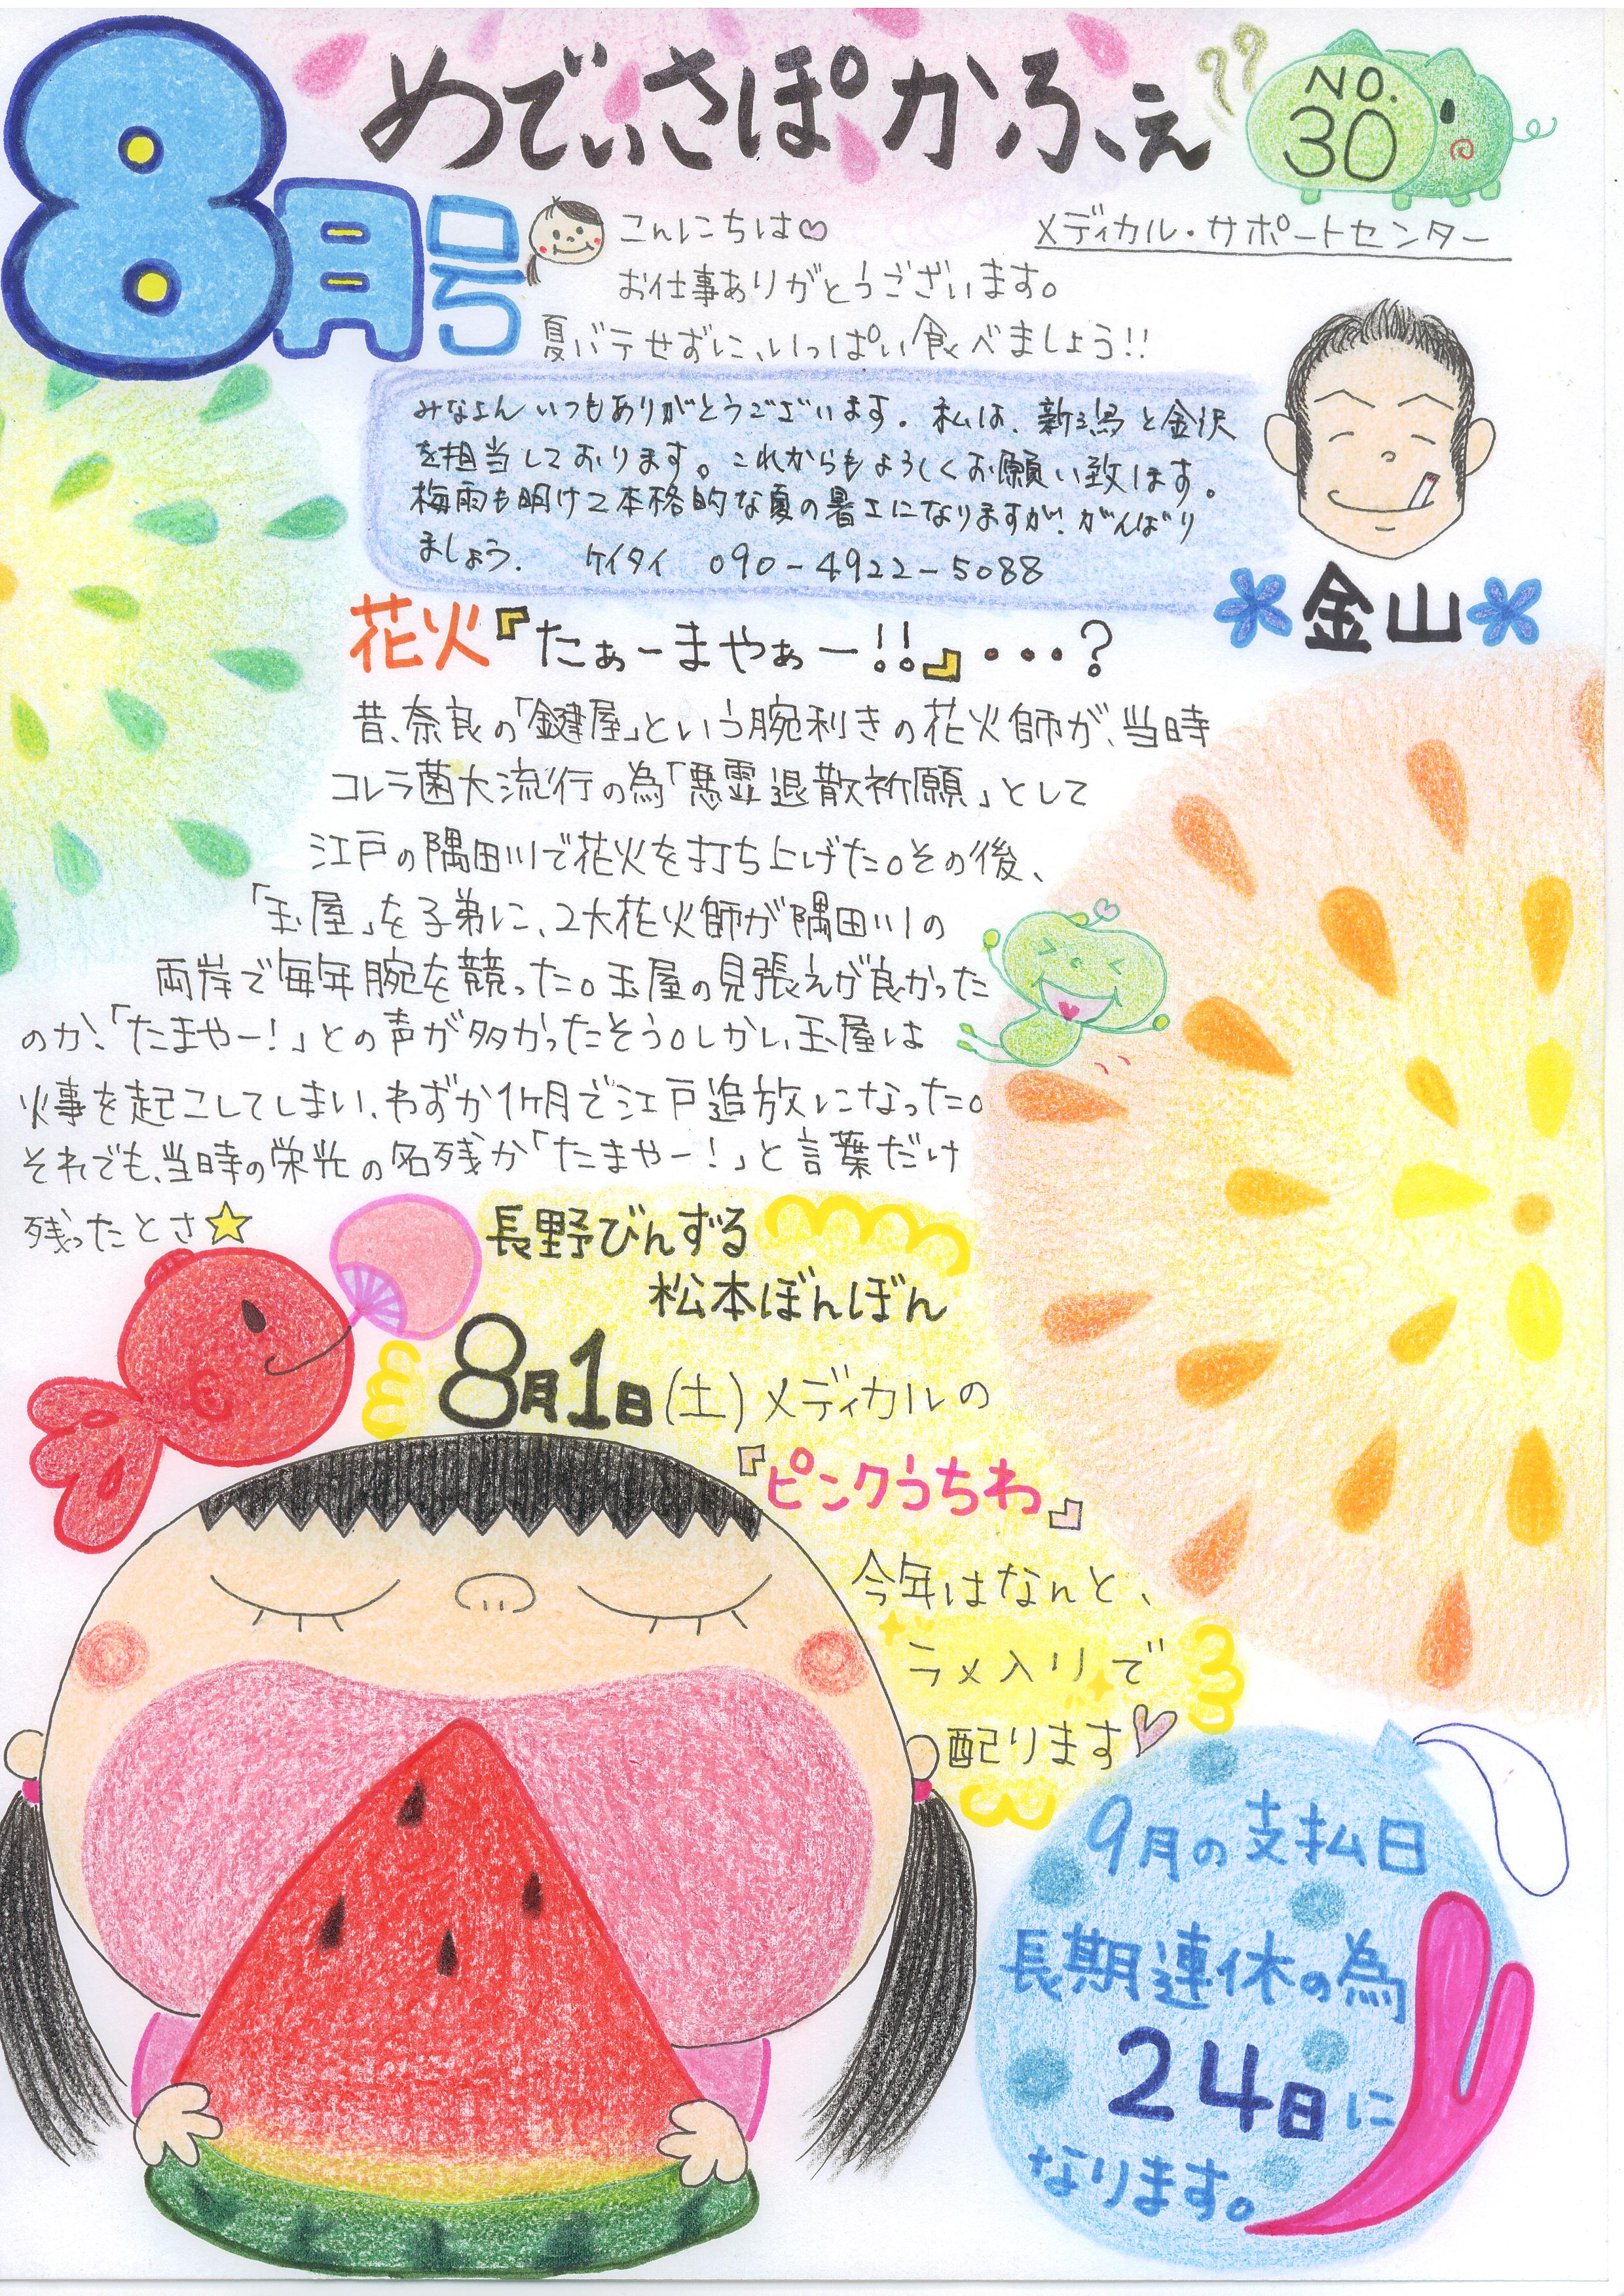 8月号
めでぃさぽかふぇ
NO.
30
メディカル・サポートセンター
こんにちは♡
お仕事ありがとうございます。
夏バテせずに、いっぱい食べましょう!!
みなさんいつもありがとうございます。私は、新潟と金沢
を担当しております。これからもよろしくお願い致します。
梅雨も明けて本格的な夏の暑さになりますが、がんばり
ましょう。 ケイタイ 090-4922-5088
金山
花火『たぁーまやぁー!!』・・・?
昔、奈良の「鍵屋」という腕利きの花火師が、当時
コレラ菌大流行の為「悪霊退散祈願」として
江戸の隅田川で花火を打ち上げた。その後、
「玉屋」を子弟に、2大花火師が隅田川の
両岸で毎年腕を競った。玉屋の見張えが良かった
のか、「たまやー!」との声が多かったそう。しかし、玉屋は
火事を起こしてしまい、わずか1ヶ月で江戸追放になった。
それでも、当時の栄光の名残か「たまやー!」と言葉だけ
残ったとさ☆
長野びんずる
松本ぼんぼん
8月1日(土)メディカルの
『ピンクうちわ』
今年はなんと、
ラメ入りで
配ります♡
9月の支払日
長期連休の為
24日に
なります。